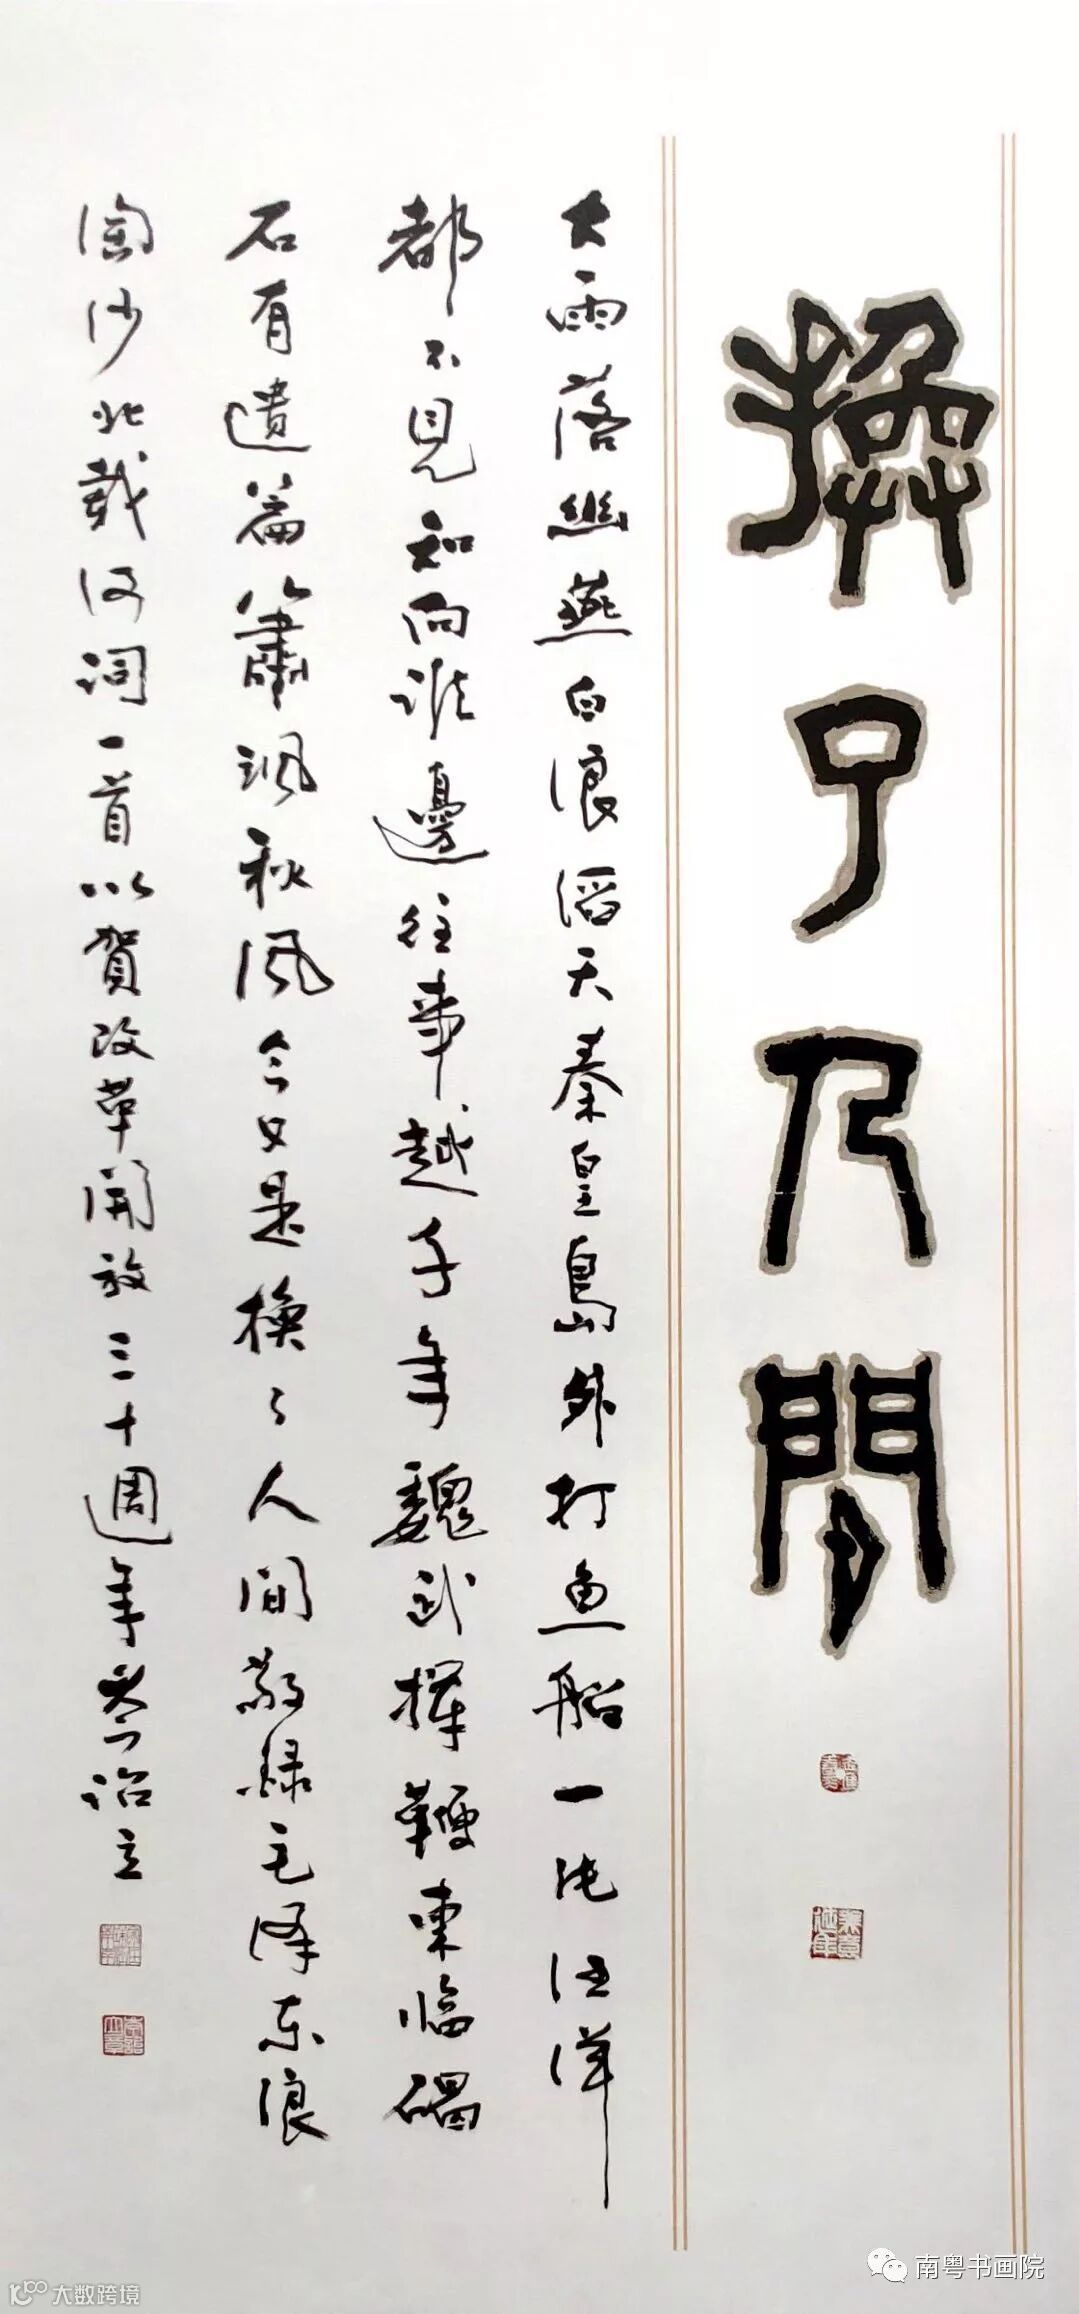 換了人間
大雨落幽燕白浪滔天秦皇島外打魚船一片汪洋
都不見知向誰邊往事越千年魏武揮鞭東臨碣
石有遺篇蕭瑟秋風今又是換了人間敬録毛澤东浪
淘沙北戴河詞一首以賀改革開放三十週年
南粤书画院
大数跨境